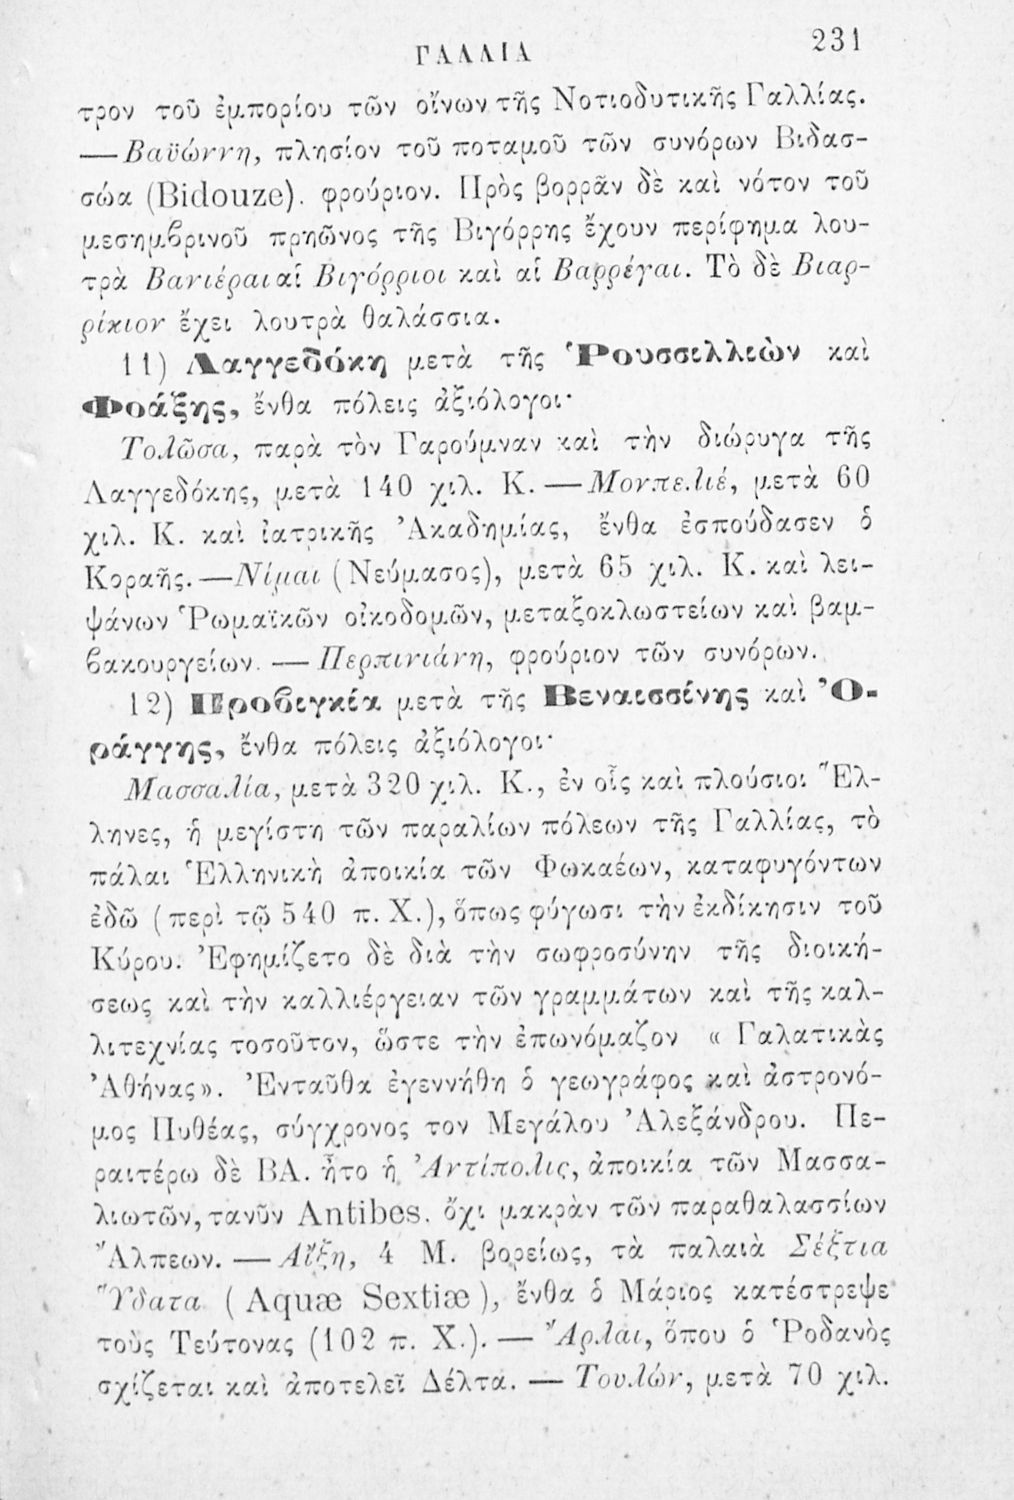 ΓΑΛΛΙΑ 231
τρον τοῦ ἐμπορίου τῶν οἴνων τῆς Νοτιοδυτικῆς Γαλλίας.
— Βαϋώννη, πλησίον τοῦ ποταμοῦ τῶν συνόρων Βιδασ-
σώα (Bidouze). φρούριον. Πρὸς βορρᾶν δὲ καὶ νότον τοῦ
μεσημβρινοῦ πρηῶνος τῆς Βιγόρρης ἔχουν περίφημα λου-
τρὰ Βανιέραι αἱ Βιγόρριοι καὶ αἱ Βαρρέγαι. Τὸ δὲ Βιαρ-
ρίκιον ἔχει λουτρὰ θαλάσσια.
11) Λαγγεδόκη μετὰ τῆς Ῥουσσιλλιὼν καὶ
Φοάξης, ἔνθα πόλεις ἀξιόλογοι·
Τολῶσα, παρὰ τὸν Γαρούμναν καὶ τὴν διώρυγα τῆς
Λαγγεδόκης, μετὰ 140 χιλ. Κ. — Μονπελιέ, μετὰ 60
χιλ. Κ. καὶ ἰατρικῆς Ἀκαδημίας, ἔνθα ἐσπούδασεν ὁ
Κοραῆς. — Νίμαι (Νεύμασος), μετὰ 65 χιλ. Κ. καὶ λει-
ψάνων Ῥωμαϊκῶν οἰκοδομῶν, μεταξοκλωστείων καὶ βαμ-
βακουργείων. — Περπινιάνη, φρούριον τῶν συνόρων.
12) Προβιγκία μετὰ τῆς Βεναισσίνης καὶ Ὀ-
ράγγης, ἔνθα πόλεις ἀξιόλογοι·
Μασσαλία, μετὰ 320 χιλ. Κ., ἐν οἷς καὶ πλούσιοι Ἕλ-
ληνες, ἡ μεγίστη τῶν παραλίων πόλεων τῆς Γαλλίας, τὸ
πάλαι Ἑλληνικὴ ἀποικία τῶν Φωκαέων, καταφυγόντων
ἐδῶ (περὶ τῷ 540 π. Χ.), ὅπως φύγωσι τὴν ἐκδίκησιν τοῦ
Κύρου. Ἐφημίζετο δὲ διὰ τὴν σωφροσύνην τῆς διοική-
σεως καὶ τὴν καλλιέργειαν τῶν γραμμάτων καὶ τῆς καλ-
λιτεχνίας τοσοῦτον, ὥστε τὴν ἐπωνόμαζον « Γαλατικὰς
Ἀθήνας». Ἐνταῦθα ἐγεννήθη ὁ γεωγράφος καὶ ἀστρονό-
μος Πυθέας, σύγχρονος τον Μεγάλου Ἀλεξάνδρου. Πε-
ραιτέρω δὲ ΒΑ. ἦτο ἡ Ἀντίπολις, ἀποικία τῶν Μασσα-
λιωτῶν, τανῦν Antibes. ὄχι μακρὰν τῶν παραθαλασσίων
Ἄλπεων. — Αἴξη, 4 Μ. βορείως, τὰ παλαιὰ Σέξτια
Ὕδατα (Aquæ Sextiæ), ἔνθα ὁ Μάριος κατέστρεψε
τοὺς Τεύτονας (102 π. Χ.). — Ἄρλαι, ὅπου ὁ Ῥοδανὸς
σχίζεται καὶ ἀποτελεῖ Δέλτα. — Τουλών, μετὰ 70 χιλ.